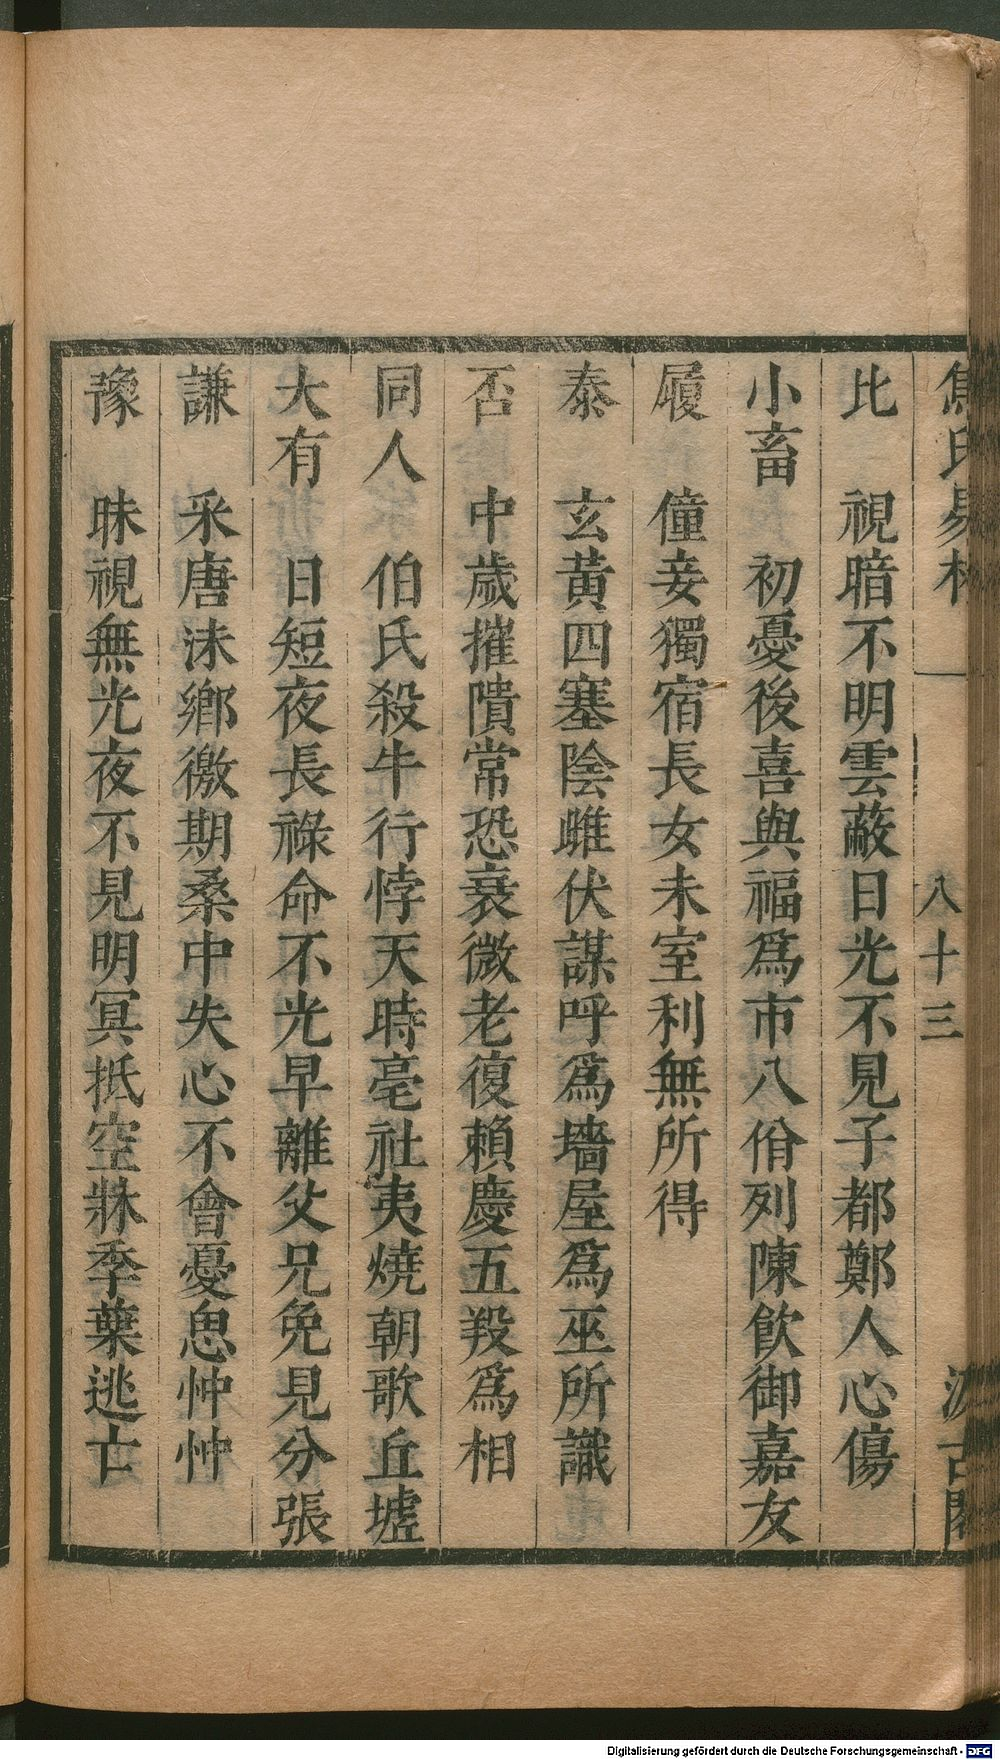 焦氏易林 八十三 汲古閣
比 視暗不明雲蔽日光不見子都鄭人心傷
小畜 初憂後喜與福爲市八佾列陳飮御嘉友
履 僮妾獨宿長女未室利無所得
泰 玄黃四塞陰雌伏謀呼爲墻屋爲巫所識
否 中歲摧隤常恐衰微老復賴慶五羖爲相
同人 伯氏殺牛行悖天時亳社夷燒朝歌丘墟
大有 日短夜長祿命不光早離父兄免見分張
謙 采唐沬鄉徼期桑中失心不會憂思忡忡
豫 昧視無光夜不見明冥抵空牀季葉逃亡
Digitalisierung gefördert durch die Deutsche Forschungsgemeinschaft - DFG